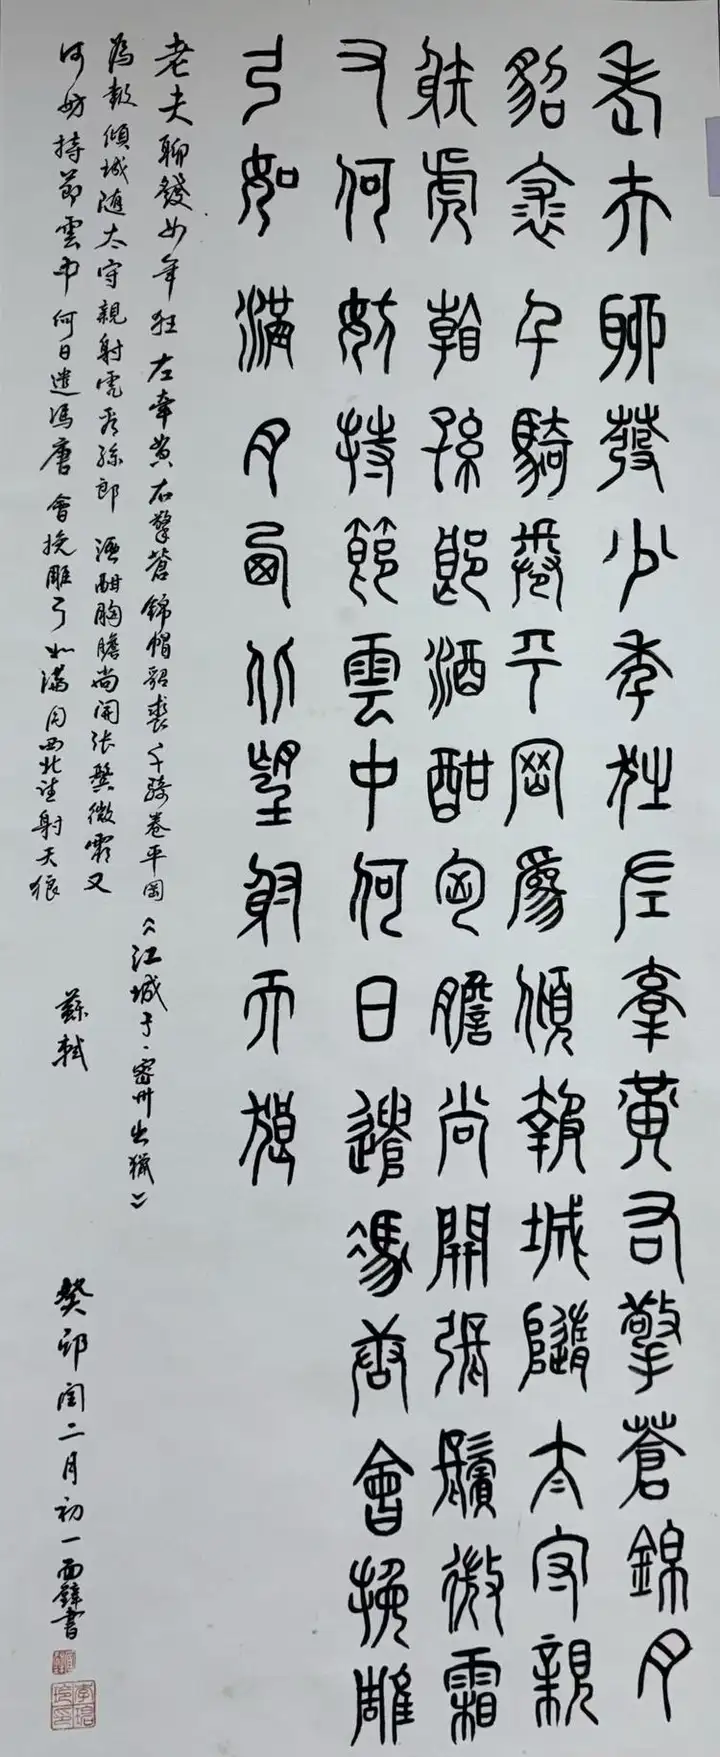 老夫聊發少年狂左牽黃右擎蒼錦冃
貂裘千騎捲平岡爲傾報城隨太守親
射虎看孫郎酒酣胸膽尚開張鬢微霜
又何妨持節雲中何日遣馮唐會挽雕
弓如滿月西北望射天狼
老夫聊發少年狂左牽黃右擎蒼錦帽貂裘千騎卷平岡《江城子·密州出獵》
為報傾城隨太守親射虎看孫郎酒酣胸膽尚開張鬢微霜又
何妨持節雲中何日遣馮唐會挽雕弓如滿月西北望射天狼
蘇軾
癸卯閏二月初一面壁書